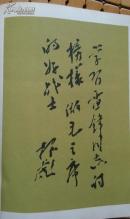 学习雷锋同志的
榜样做毛主席
的好战士
林彪